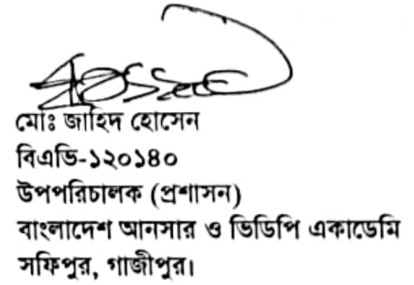 মোঃ জাহিদ হোসেন
বিএভি-১২০১৪০
উপপরিচালক (প্রশাসন)
বাংলাদেশ আনসার ও ভিডিপি একাডেমি
সফিপুর, গাজীপুর।